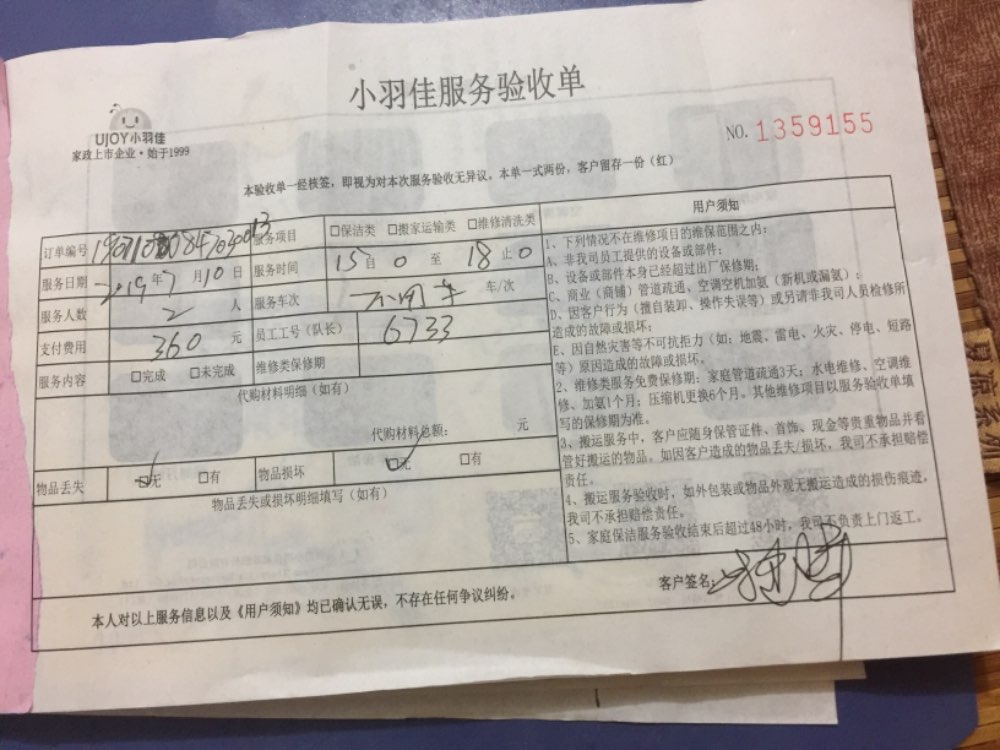 小羽佳服务验收单
UJOY小羽佳
家政上市企业·始于1999
NO. 1359155
本验收单一经核签，即视为对本次服务验收无异议。本单一式两份，客户留存一份（红）
订单编号 服务项目 □保洁类 □搬家运输类 □维修清洗类
服务日期 2019年7月10日 服务时间 15自0至18止0
服务人数 2人 服务车次 不用车 车/次
支付费用 360元 员工工号（队长） 6733
服务内容 □完成 □未完成 维修类保修期
代购材料明细（如有）
代购材料总额： 元
物品丢失 ☑无 □有 物品损坏 ☑无 □有
物品丢失或损坏明细填写（如有）
用户须知
1、下列情况不在维修项目的维保范围之内：
A、非我司员工提供的设备或部件；
B、设备或部件本身已经超过出厂保修期；
C、商业（商铺）管道疏通、空调空机加氨（新机或漏氨）；
D、因客户行为（擅自装卸、操作失误等）或另请非我司人员检修所
造成的故障或损坏；
E、因自然灾害等不可抗拒力（如：地震、雷电、火灾、停电、短路
等）原因造成的故障或损坏。
2、维修类服务免费保修期：家庭管道疏通3天；水电维修、空调维
修、加氨1个月；压缩机更换6个月。其他维修项目以服务验收单填
写的保修期为准。
3、搬运服务中，客户应随身保管证件、首饰、现金等贵重物品并看
管好搬运的物品。如因客户造成的物品丢失/损坏，我司不承担赔偿
责任。
4、搬运服务验收时，如外包装或物品外观无搬运造成的损伤痕迹，
我司不承担赔偿责任。
5、家庭保洁服务验收结束后超过48小时，我司不负责上门返工。
客户签名：
本人对以上服务信息以及《用户须知》均已确认无误，不存在任何争议纠纷。